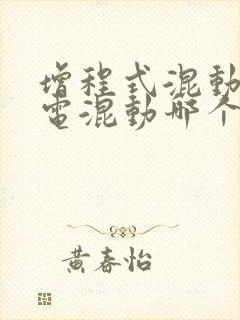 增程式混動
電混動那个
黄春怡